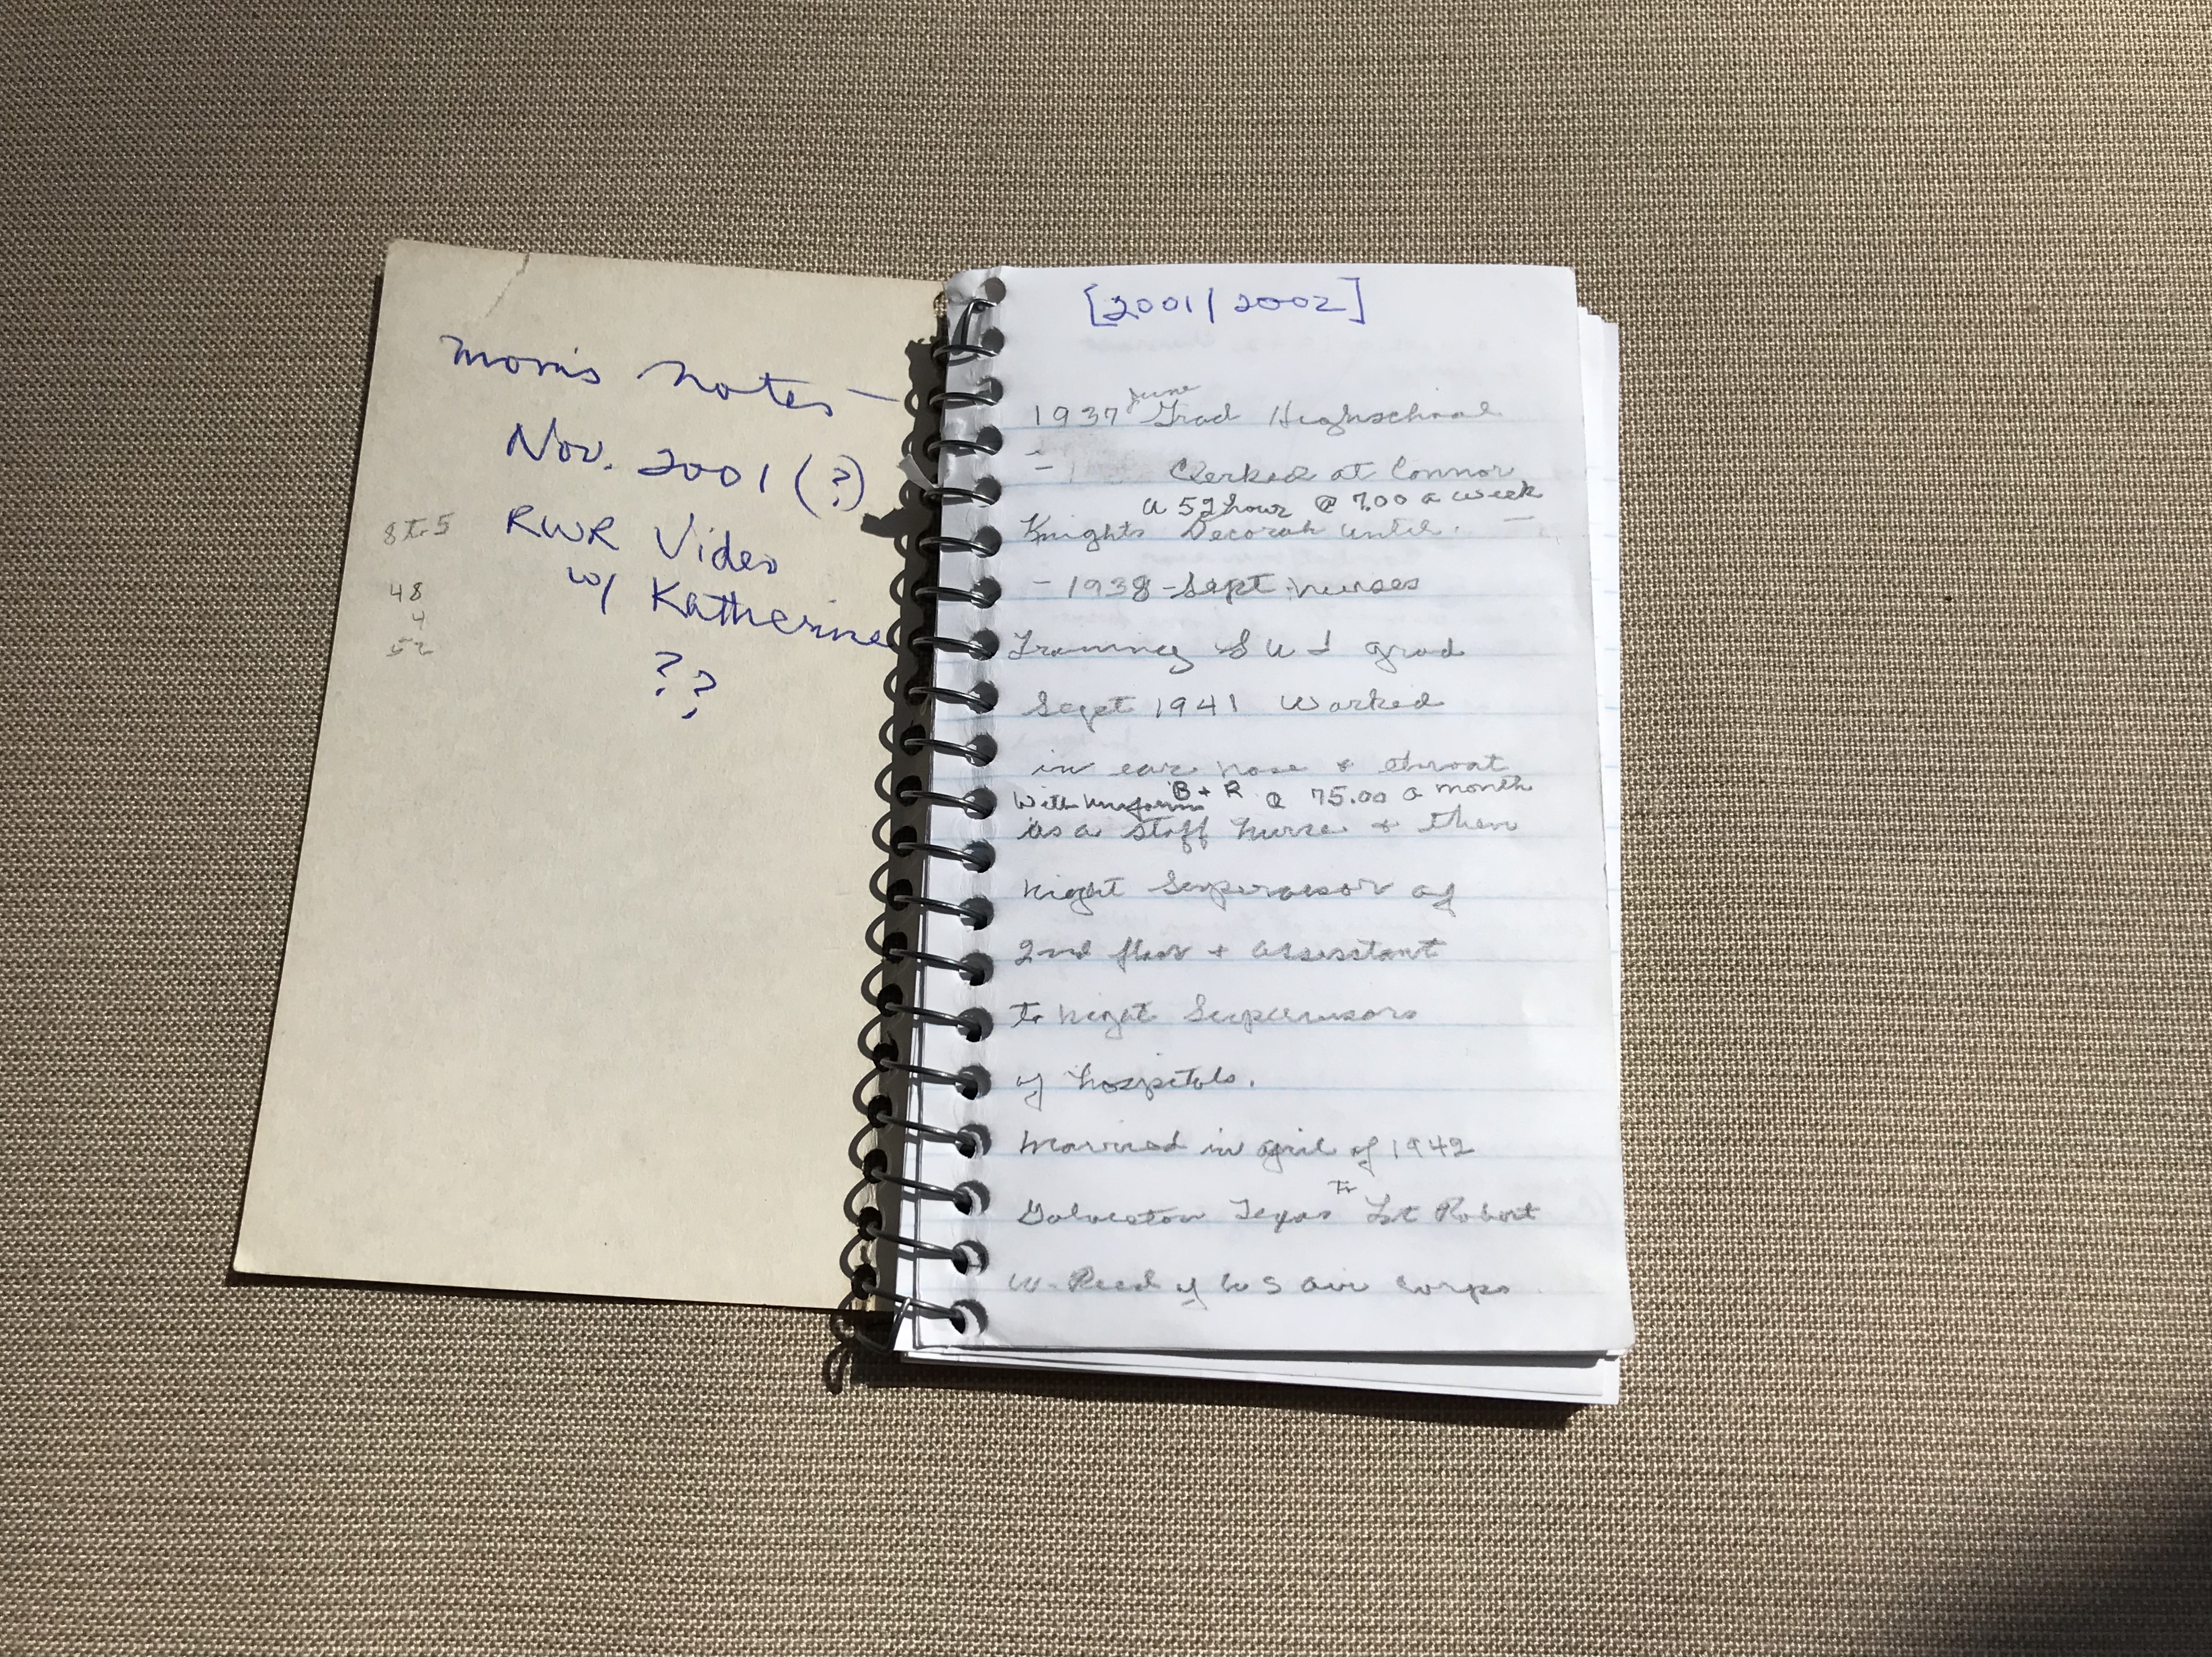 Mom's Notes —
Nov. 2001 (?)
RWR Video
w/ Katherine
??
8 to 5
48
4
52
[2001/2002]
June
1937 Grad Highschool
- Clerked at Connor
a 52 hour @ 7.00 a week
Knights Decorah until. —
- 1938 - Sept nurses
Training S U I grad
Sept 1941 Worked
in ear nose + throat
With uniforms B + R @ 75.00 a month
as a staff nurse + then
night Supervisor of
2nd floor + assistant
to night Supervisors
of hospitals.
Married in April of 1942
Galveston Texas to Lt Robert
W. Reed of U S air corps